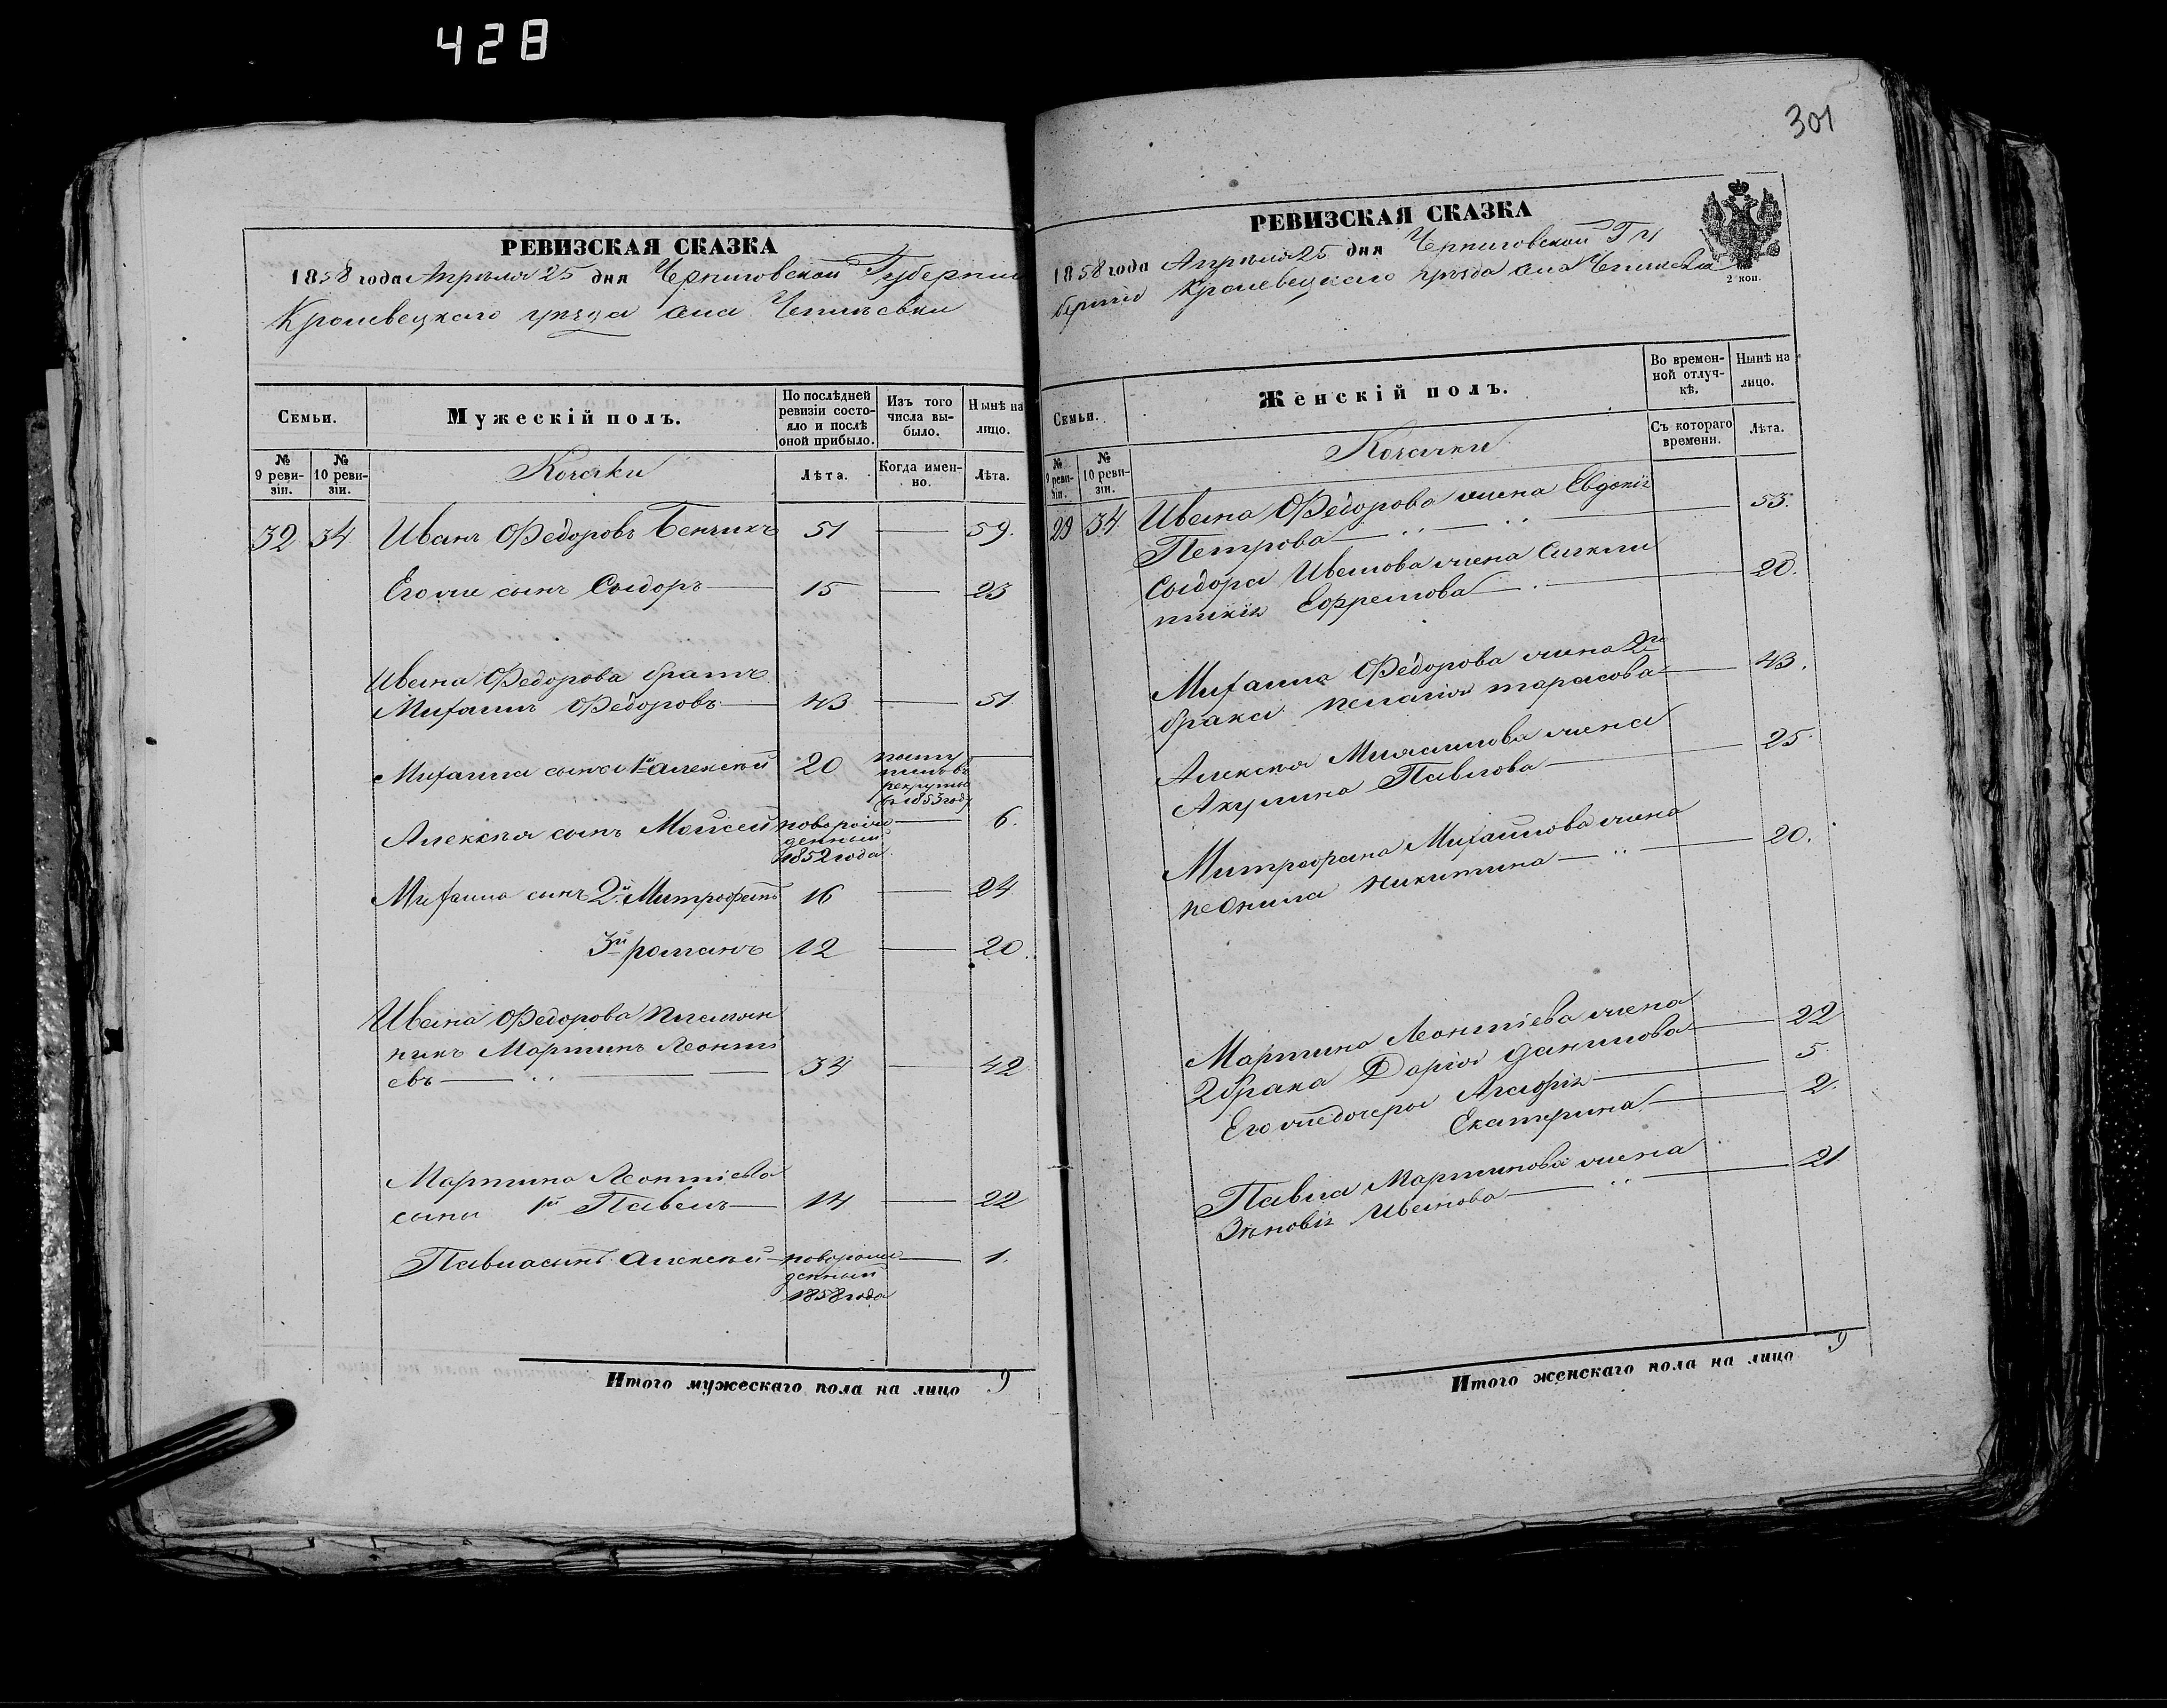 428
РЕВИЗСКАЯ СКАЗКА
1858 года Апреля 25 дня Черниговской Губернии
Кролевецкаго уезда села Чепліевки
Семьи.
Мужескій полъ.
По послѣдней ревизіи состояло и послѣ оной прибыло.
Изъ того числа выбыло.
Нынѣ на лицо.
№ 9 ревизіи.
№ 10 ревизіи.
Козаки
Лѣта.
Когда именно.
Лѣта.
32 34 Иванъ Федоровъ 51 — 59.
Его же сынъ Сыдоръ — 15 — 23
Ивана Федорова братъ
Михаилъ Федоровъ — 43 — 51
Михаила сынъ 1й Алексѣй 20 посту
пилъ въ
рекруты
въ 1853 году
Алексѣя сынъ Мойсей новорож
денный
1852 года — 6.
Михаила сынъ 2й Митрофанъ 16 — 24
3й романъ 12 — 20.
Ивана Федорова племян
никъ Мартинъ Леонті
евъ — 34 — 42
Мартина Леонтіева
сыны 1й Павелъ — 14 — 22
Павла сынъ Алексѣй новорож
денный
1858 года — 1.
Итого мужескаго пола на лицо 9
301
РЕВИЗСКАЯ СКАЗКА
1858 года Апреля 25 дня Черниговской Гу
берніи Кролевецкаго уезда села
2 коп.
Семьи.
Женскій полъ.
Во временной отлучкѣ.
Нынѣ на лицо.
№ 9 ревизіи.
№ 10 ревизіи.
Козачки
Съ котораго времени.
Лѣта.
29 34 Ивана Федорова жена Евдокія
Петрова — 53.
Сыдора Иванова жена
Ефремова — 20.
Михаила Федорова жена 2го
брака пелагія тарасова — 43.
Алексѣя Михаилова жена
Акулина Павлова — 25.
Митрофана Михаилова жена
неонила никитина — 20.
Мартина Леонтіева жена
2 брака Дарія данилова — 22
Его же дочеры Агафія — 5.
Екатерина — 2.
Павла Мартинова жена
Зѣновія Иванова — 21
Итого женскаго пола на лицо 9